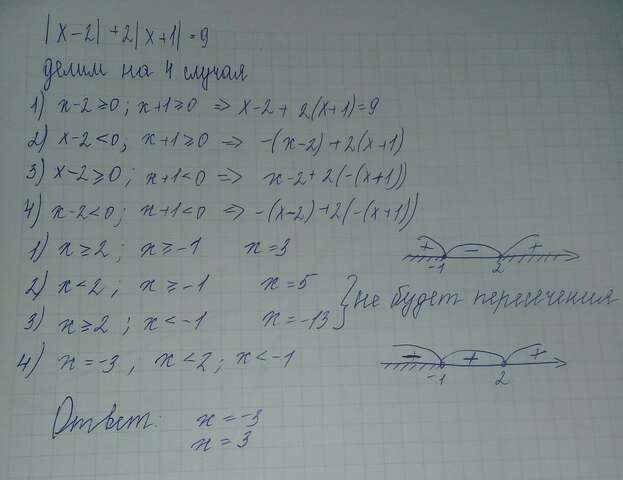 |x-2|+2|x+1|=9
делим на 4 случая
1) x-2≥0; x+1≥0 => x-2+2(x+1)=9
2) x-2<0; x+1≥0 => -(x-2)+2(x+1)
3) x-2≥0; x+1<0 => x-2+2(-(x+1))
4) x-2<0; x+1<0 => -(x-2)+2(-(x+1))
1) x≥2; x≥-1 x=3
+ - +
-1 2
2) x<2; x≥-1 x=5
3) x≥2; x<-1 x=-13
} не будет пересечения
4) x=-3, x<2; x<-1
+ + +
-1 2
Ответ: x=-3
x=3